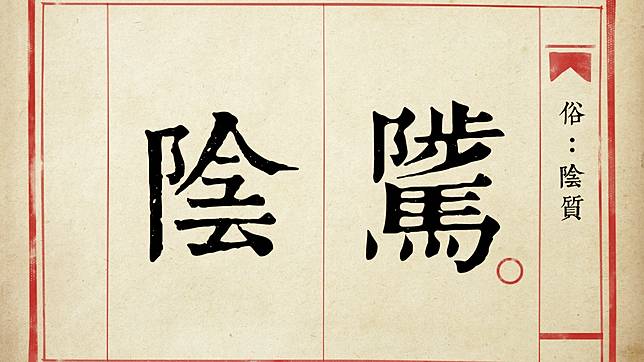 陰騭。
俗：陰質